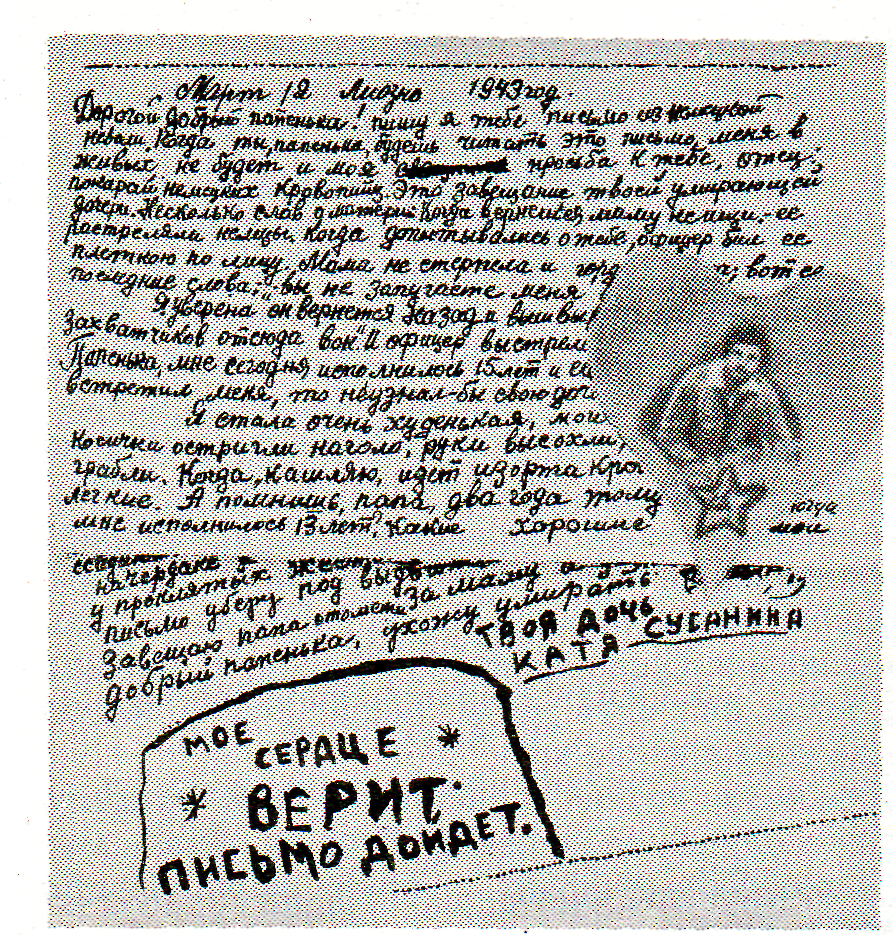 Март 12 Лиозно 1943 год.
Дорогой добрый папенька! пишу я тебе письмо из немецкой
неволи. Когда ты, папенька, будешь читать это письмо, меня в
живых, не будет и моя просьба к тебе, отец:
покарай немецких кровопийц. Это завещание твоей умирающей
дочери. Несколько слов о матери. Когда вернешься, маму не ищи. ее
растреляли немцы. Когда допытывались о тебе, офицер бил ее
плеткою по лицу. Мама не стерпела и горд вот ее
последние слова: "вы не запугаете меня
Я уверена он вернется назад и вышвы
захватчиков отсюда вон". И офицер выстрели
Папенька, мне сегодня исполнилось 15 лет и ес
встретил меня, то неузнал-бы свою доч
Я стала очень худенькая, мои
косички остригли наголо, руки высохли,
грабли. Когда, кашляю, идет изорта кро
легкие. А помнишь, папа, два года тому
мне исполнилось 13 лет? Какие хорошие мои
на чердаке
у проклятых
письмо уберу под
Завещаю папа отомсти за маму и
добрый папенька, ухожу умирать
ТВОЯ ДОЧЬ
КАТЯ СУСАНИНА
МОЕ
СЕРДЦЕ
ВЕРИТ.
ПИСЬМО ДОЙДЕТ.